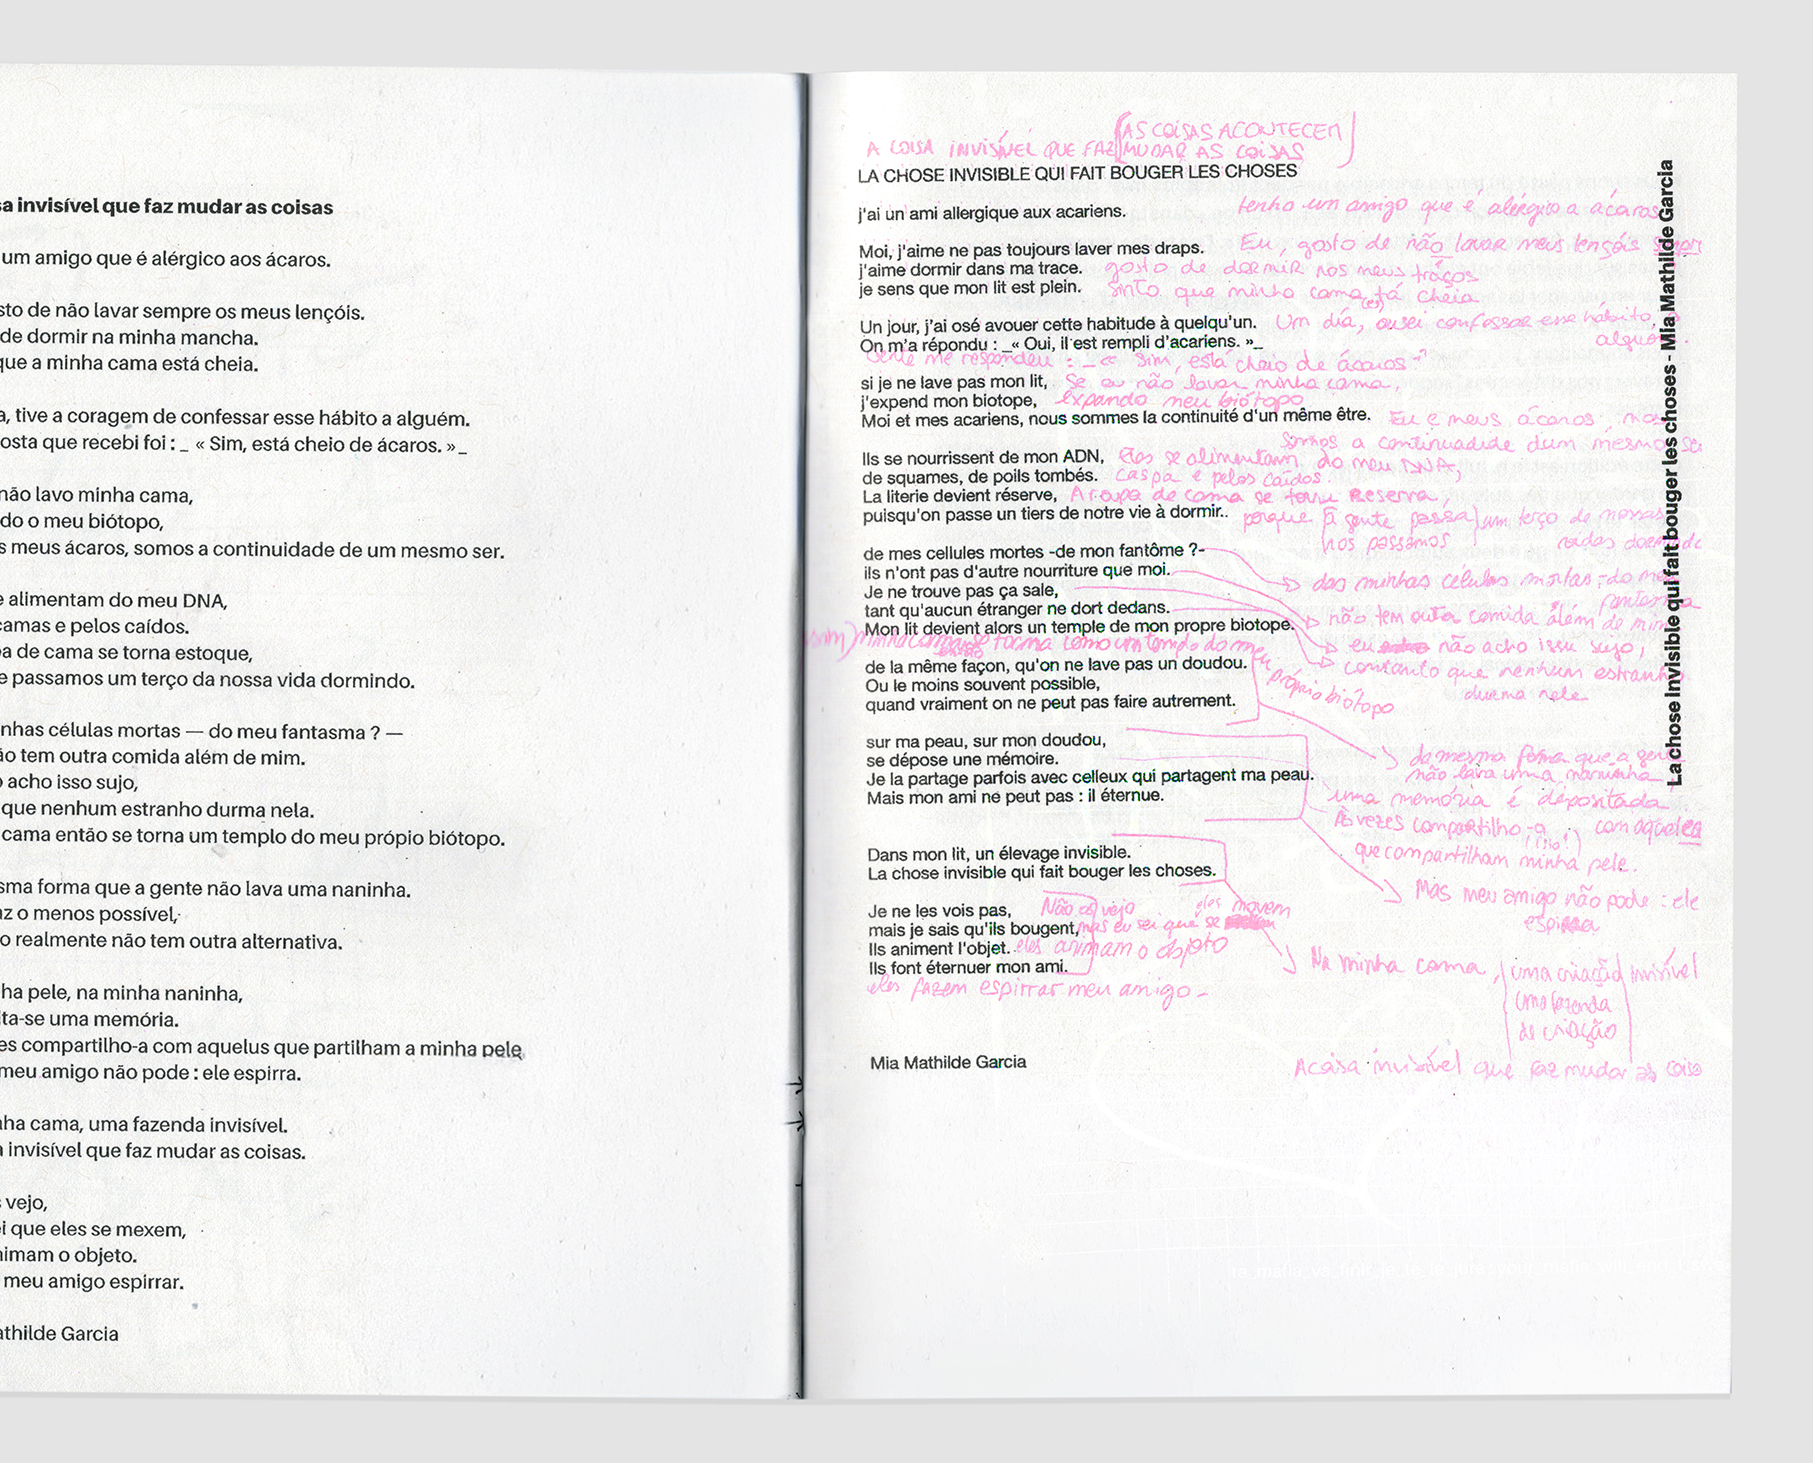 sa invisível que faz mudar as coisas
um amigo que é alérgico aos ácaros.
sto de não lavar sempre os meus lençóis.
de dormir na minha mancha.
que a minha cama está cheia.
a, tive a coragem de confessar esse hábito a alguém.
osta que recebi foi : _ « Sim, está cheio de ácaros. » _
não lavo minha cama,
do o meu biótopo,
s meus ácaros, somos a continuidade de um mesmo ser.
e alimentam do meu DNA,
camas e pelos caídos.
a de cama se torna estoque,
e passamos um terço da nossa vida dormindo.
nhas células mortas — do meu fantasma ? —
ão tem outra comida além de mim.
o acho isso sujo,
que nenhum estranho durma nela.
cama então se torna um templo do meu própio biótopo.
sma forma que a gente não lava uma naninha.
az o menos possível,
o realmente não tem outra alternativa.
ha pele, na minha naninha,
ita-se uma memória.
es compartilho-a com aquelus que partilham a minha pele
meu amigo não pode : ele espirra.
nha cama, uma fazenda invisível.
a invisível que faz mudar as coisas.
s vejo,
ei que eles se mexem,
nimam o objeto.
meu amigo espirrar.
athilde Garcia
AS COISAS ACONTECEM
A COISA INVISÍVEL QUE FAZ MUDAR AS COISAS
LA CHOSE INVISIBLE QUI FAIT BOUGER LES CHOSES
j'ai un ami allergique aux acariens. tenho um amigo que é alérgico a ácaros
Moi, j'aime ne pas toujours laver mes draps. Eu, gosto de não lavar meus lençóis
j'aime dormir dans ma trace. gosto de dormir nos meus traços
je sens que mon lit est plein. sinto que minha cama (es)tá cheia
Un jour, j'ai osé avouer cette habitude à quelqu'un. Um dia, ousei confessar esse hábito, a
On m'a répondu : _« Oui, il est rempli d'acariens. »_ alguém.
me respondeu : _ « Sim, está cheio de ácaros »
si je ne lave pas mon lit, Se eu não lavar minha cama,
j'expend mon biotope, expando meu biótopo
Moi et mes acariens, nous sommes la continuité d'un même être. Eu e meus ácaros, nós
somos a continuadide dum mesmo se
Ils se nourrissent de mon ADN, Eles se alimentam do meu DNA,
de squames, de poils tombés. caspa e pelos caídos.
La literie devient réserve, A roupa de cama se torna Reserva,
puisqu'on passe un tiers de notre vie à dormir.. porque a gente passa um terço de nossas
nós passamos vidas dormindo
de mes cellules mortes -de mon fantôme ?-
ils n'ont pas d'autre nourriture que moi. das minhas células mortas, do meu
Je ne trouve pas ça sale, fantasma
tant qu'aucun étranger ne dort dedans. não tem outra comida além de mim
Mon lit devient alors un templo de mon propre biotope. eu não acho isso sujo,
minha cama se torna como um templo do meu
próprio biótopo
contanto que nenhum estranho
durma nele
de la même façon, qu'on ne lave pas un doudou.
Ou le moins souvent possible,
quand vraiment on ne peut pas faire autrement.
sur ma peau, sur mon doudou,
se dépose une mémoire. da mesma forma que a gente
Je la partage parfois avec celleux qui partagent ma peau. não lava uma naninha
Mais mon ami ne peut pas : il éternue. uma memória é depositada
Às vezes compartilho-a com aqueles
que compartilham minha pele.
Dans mon lit, un élevage invisible.
La chose invisible qui fait bouger les choses.
Mas meu amigo não pode : ele
espirra
Je ne les vois pas, Não os vejo
mais je sais qu'ils bougent, mas eu sei que eles se movem
Ils animent l'objet. eles animam o objeto
Ils font éternuer mon ami.
eles fazem espirrar meu amigo -
Na minha cama, uma criação invisível
uma fazenda
de criação
A coisa invisível que faz mudar as coisa
Mia Mathilde Garcia
La chose invisible qui fait bouger les choses - Mia Mathilde Garcia